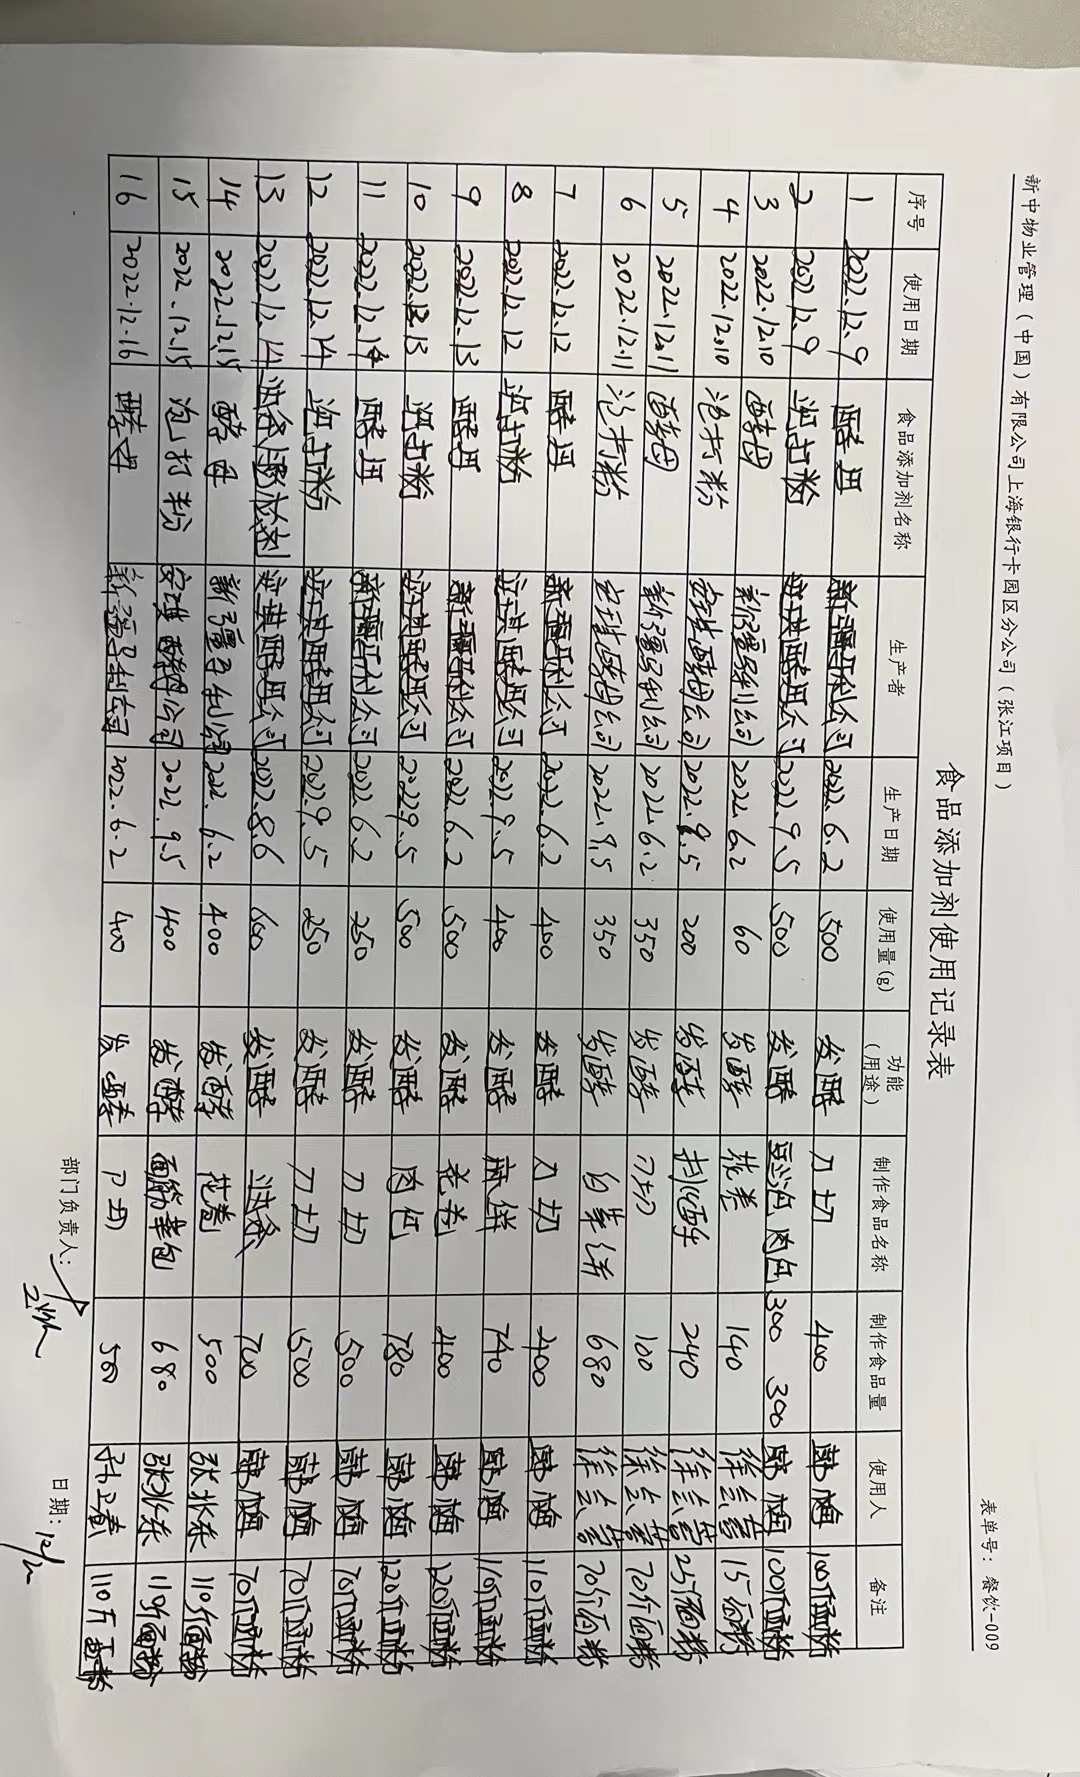 新中物业管理（中国）有限公司上海银行卡园区分公司（张江项目）
表单号：餐饮-009
食品添加剂使用记录表
序号 使用日期 食品添加剂名称 生产者 生产日期 使用量(g) 功能（用途） 制作食品名称 制作食品量 使用人 备注
1 2022.12.9 酵母 新疆马利公司 2022.6.2 500 发酵 刀切 400 韩梅 100斤面粉
2 2022.12.9 泡打粉 安琪酵母公司 2022.9.5 500 发酵 豆沙包 肉包 300 300 韩梅 100斤面粉
3 2022.12.10 酵母 新疆马利公司 2022.6.2 60 发酵 花卷 140 徐会营 15斤面粉
4 2022.12.10 泡打粉 安琪酵母公司 2022.9.5 200 发酵 240 徐会营 25斤面粉
5 2022.12.11 酵母 新疆马利公司 2022.6.2 350 发酵 刀切 100 徐会营 70斤面粉
6 2022.12.11 泡打粉 安琪酵母公司 2022.9.5 350 发酵 680 徐会营 70斤面粉
7 2022.12.12 酵母 新疆马利公司 2022.6.2 400 发酵 刀切 400 韩梅 110斤面粉
8 2022.12.12 泡打粉 安琪酵母公司 2022.9.5 400 发酵 麻饼 740 韩梅 110斤面粉
9 2022.12.13 酵母 新疆马利公司 2022.6.2 500 发酵 花卷 400 韩梅 120斤面粉
10 2022.12.13 泡打粉 安琪酵母公司 2022.9.5 500 发酵 肉包 780 韩梅 120斤面粉
11 2022.12.14 酵母 新疆马利公司 2022.6.2 250 发酵 刀切 500 韩梅 70斤面粉
12 2022.12.14 泡打粉 安琪酵母公司 2022.9.5 250 发酵 刀切 500 韩梅 70斤面粉
13 2022.12.14 油条膨松剂 安琪酵母公司 2022.8.6 600 发酵 油条 700 韩梅 70斤面粉
14 2022.12.15 酵母 新疆马利公司 2022.6.2 400 发酵 花卷 500 张兆东 110斤面粉
15 2022.12.15 泡打粉 安琪酵母公司 2022.9.5 400 发酵 面筋菜包 680 张兆东 110斤面粉
16 2022.12.16 酵母 新疆马利公司 2022.6.2 400 发酵 刀切 500 110斤面粉
部门负责人： 日期：